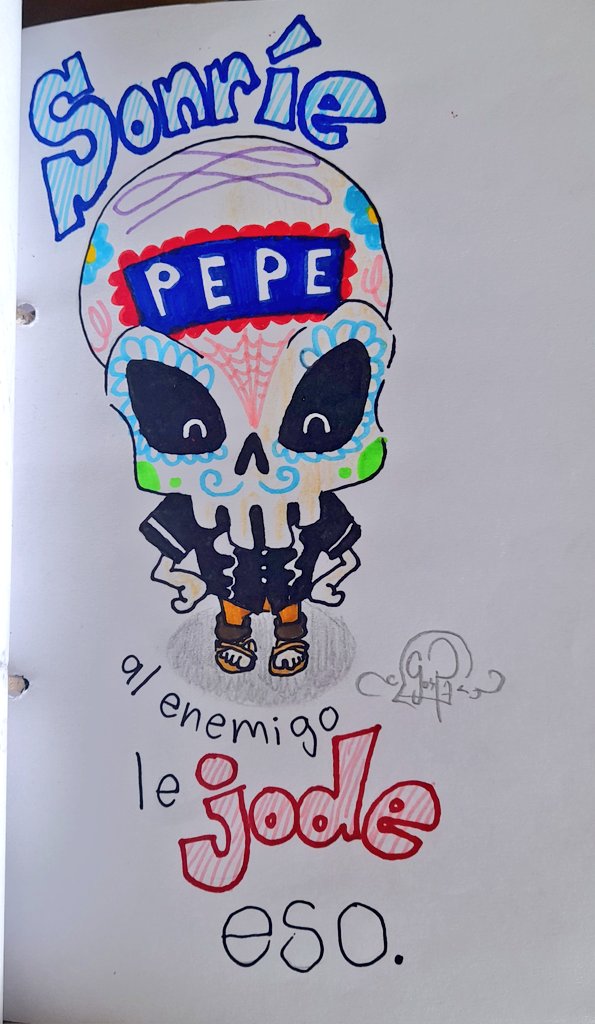 Sonríe
PEPE
al enemigo
le jode
eso.